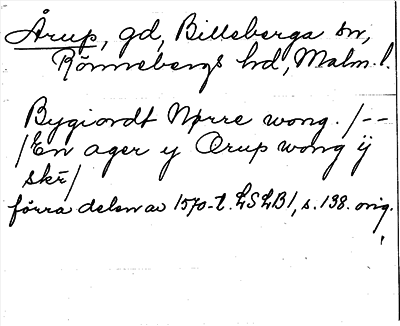 Årup, gd, Billeberga sn,
Rönnebergs hd, Malm. l.
Bygiordt Nørre wong. /--
/En ager y Ørup wong ÿ
skr̄/
förra delen av 1570-t. LSLB1, s. 138. orig.